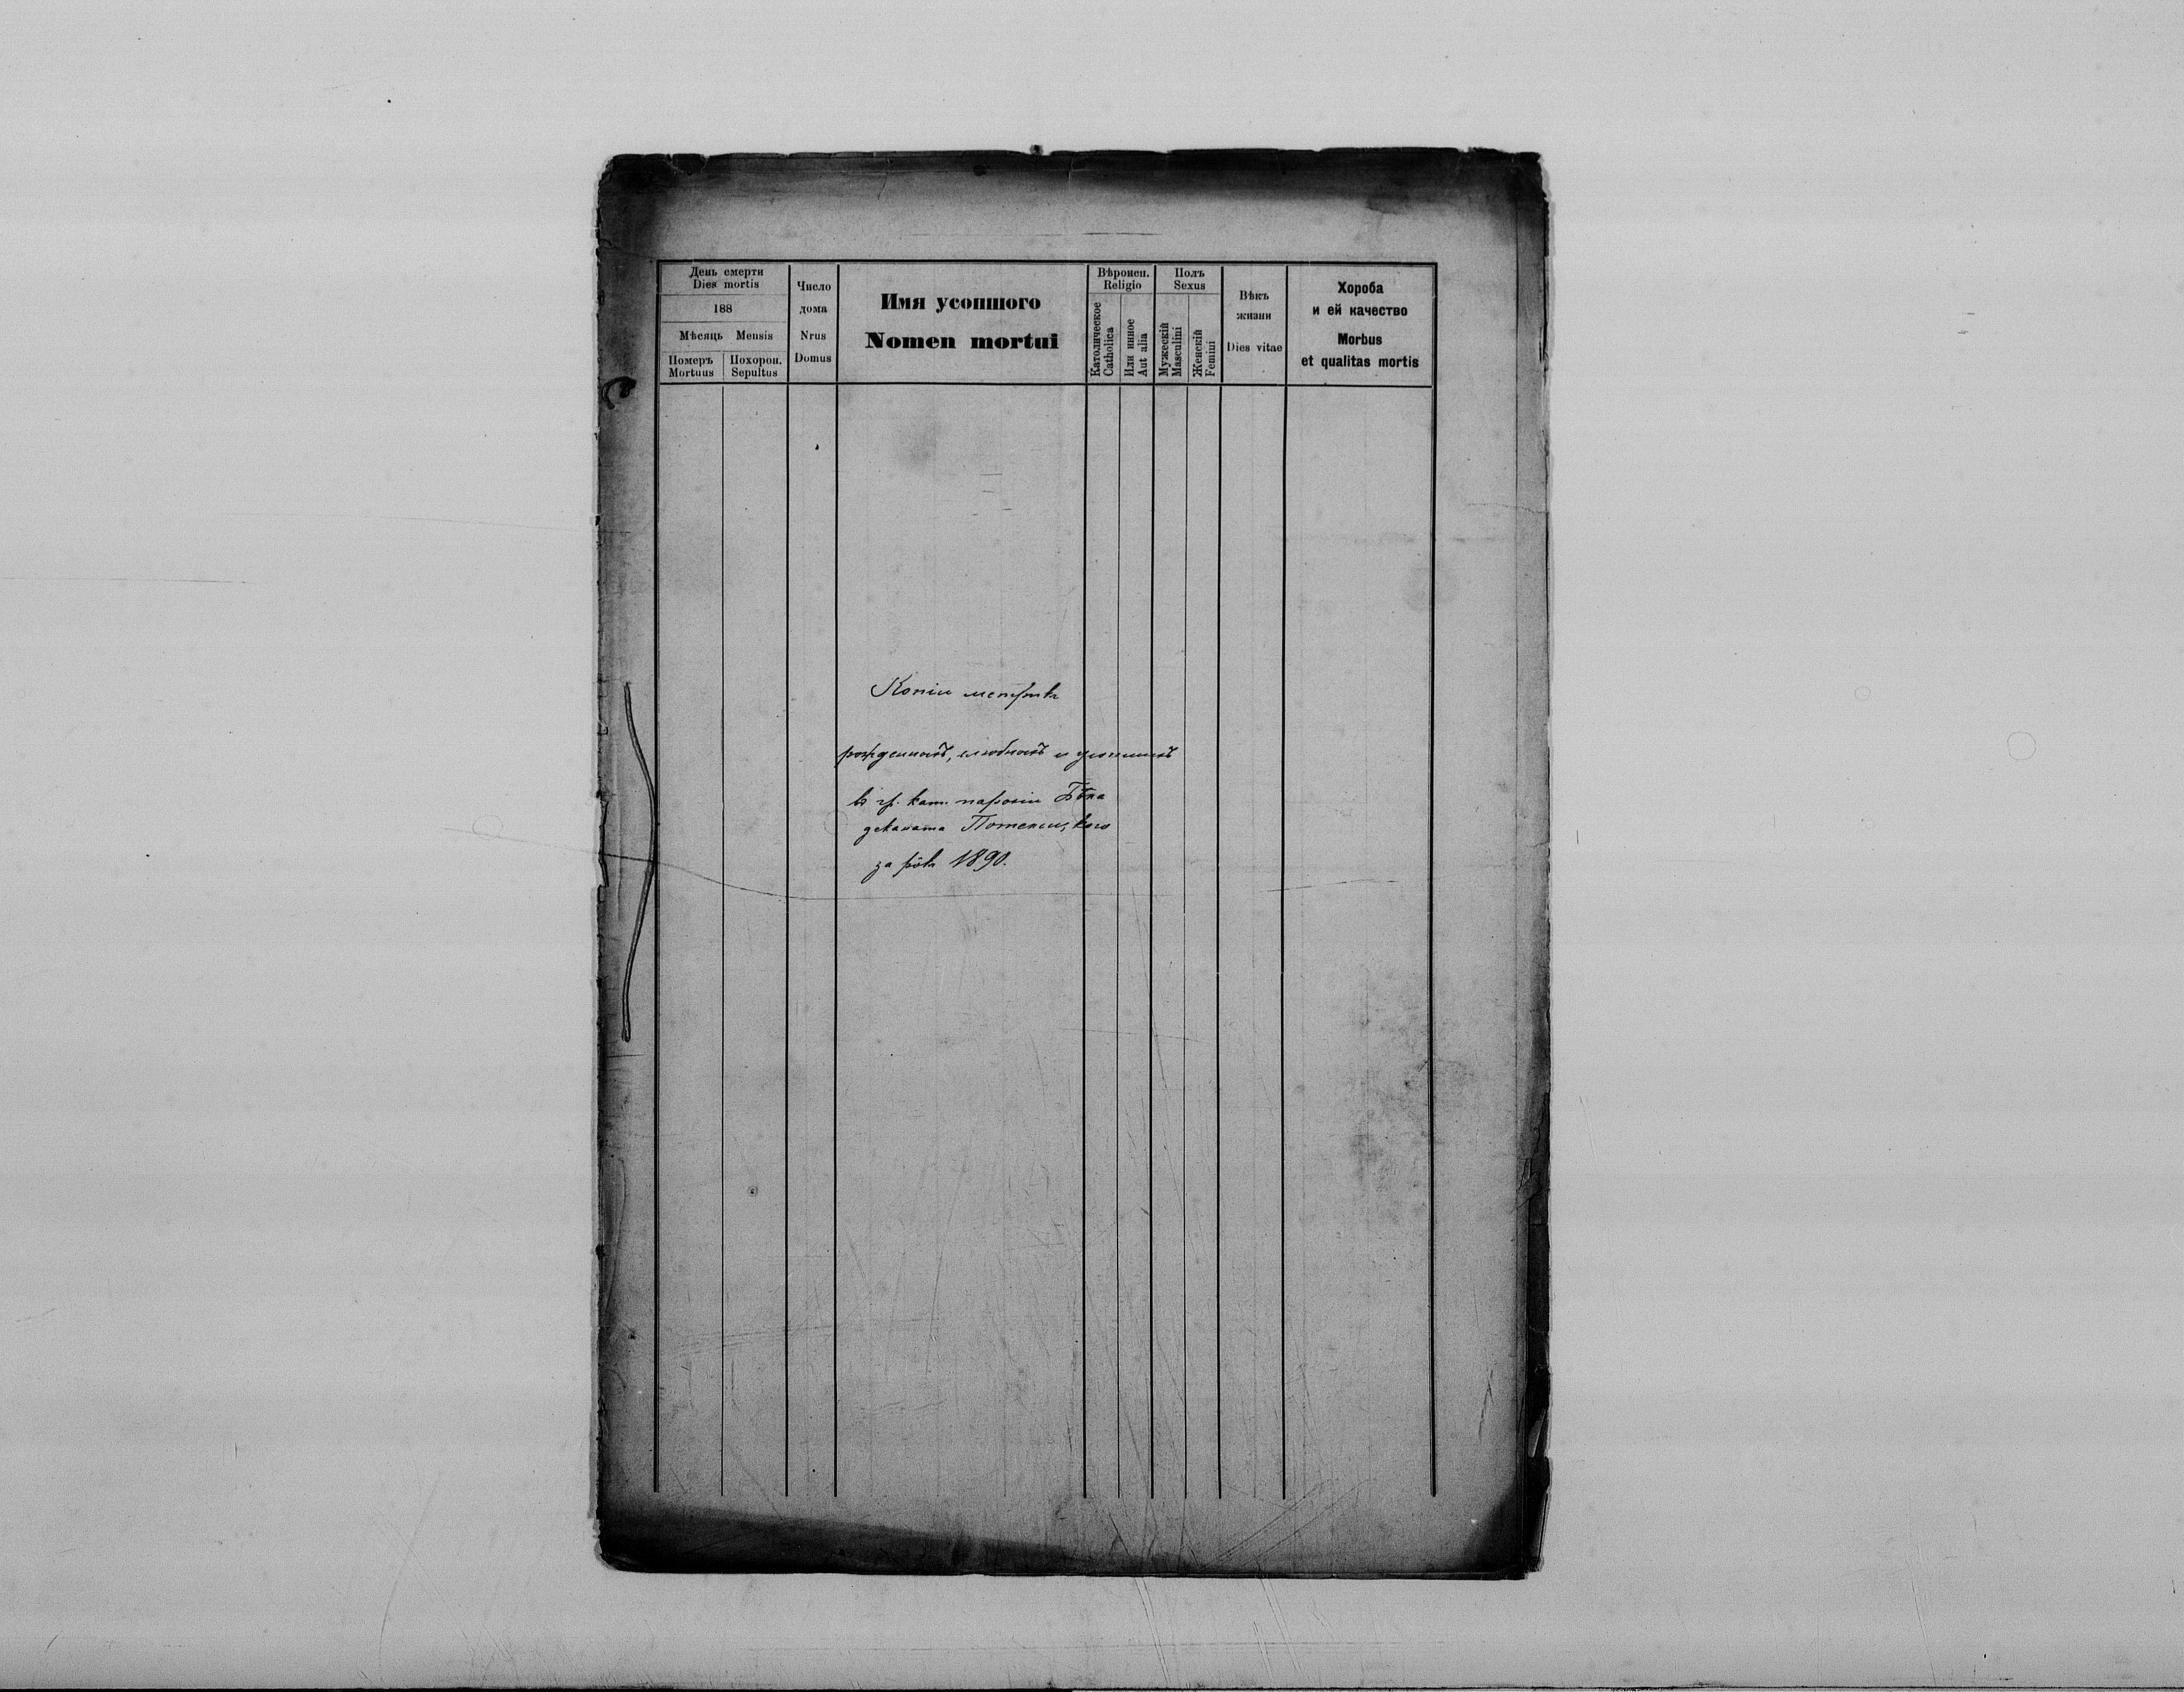 День смерти
Dies mortis
188
Мѣсяць Mensis
Померъ Похорон.
Mortuus Sepultus
Число
дома
Nrus
Domus
Имя усопшого
Nomen mortui
Вѣроисп.
Religio
Католическое
Catholica
Или инное
Aut alia
Полъ
Sexus
Мужескій
Masculini
Женскій
Femini
Вѣкъ
жизни
Dies vitae
Хороба
и ей качество
Morbus
et qualitas mortis
Копіи метрик
рожденныхъ, слюбныхъ и усопшихъ
в гр. кат. парохіи
деканата
за рôк 1890.